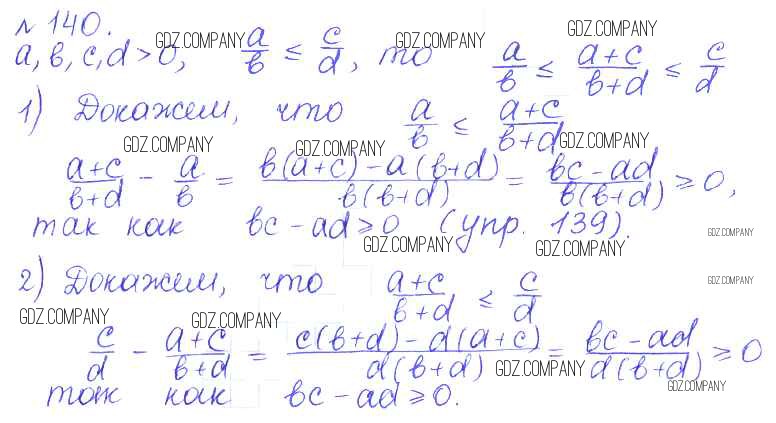 № 140.
a, b, c, d > 0, a/b ≤ c/d, то a/b ≤ (a+c)/(b+d) ≤ c/d
1) Докажем, что a/b ≤ (a+c)/(b+d)
(a+c)/(b+d) - a/b = (b(a+c) - a(b+d))/(b(b+d)) = (bc - ad)/(b(b+d)) ≥ 0,
так как bc - ad ≥ 0 (упр. 139).
2) Докажем, что (a+c)/(b+d) ≤ c/d
c/d - (a+c)/(b+d) = (c(b+d) - d(a+c))/(d(b+d)) = (bc - ad)/(d(b+d)) ≥ 0
так как bc - ad ≥ 0.
GDZ.COMPANY GDZ.COMPANY GDZ.COMPANY
GDZ.COMPANY GDZ.COMPANY GDZ.COMPANY
GDZ.COMPANY GDZ.COMPANY GDZ.COMPANY
GDZ.COMPANY
GDZ.COMPANY GDZ.COMPANY
GDZ.COMPANY GDZ.COMPANY